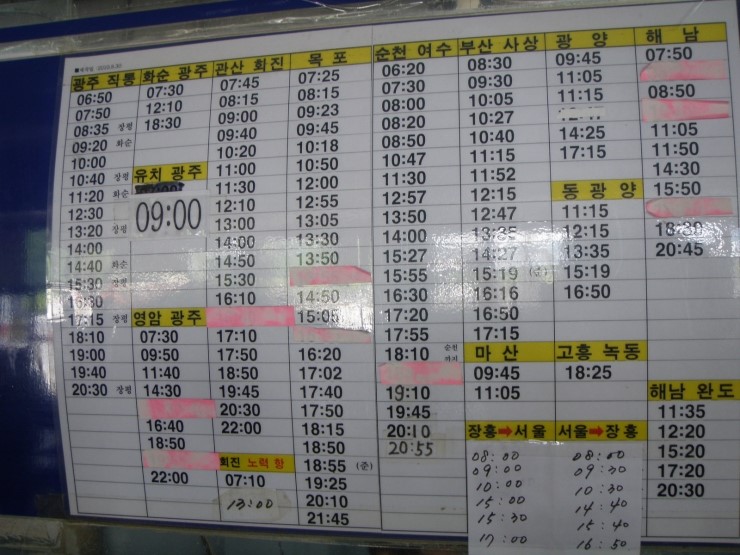 광주 직통
06:50
07:50
08:35 장평
09:20 화순
10:00
10:40 장평
11:20 화순
12:30
13:20 장평
14:00
14:40 화순
15:30 장평
16:30
17:15 장평
18:10
19:00
19:40
20:30 장평
화순 광주
07:30
12:10
18:30
유치 광주
09:00
영암 광주
07:30
09:50
11:40
14:30
16:40
18:50
22:00
관산 회진
07:45
08:15
09:00
09:40
10:20
11:00
11:30
12:10
13:00
14:00
14:50
15:30
16:10
17:10
17:50
18:50
19:45
20:30
22:00
회진 노력항
07:10
13:00
목포
07:25
08:15
09:23
09:45
10:18
10:50
12:00
12:55
13:05
13:30
13:50
14:50
15:05
16:20
17:02
17:40
17:50
18:15
18:50
18:55 (준)
19:25
20:10
21:45
순천 여수
06:20
07:30
08:00
08:20
08:50
10:47
11:30
12:57
13:50
14:00
15:27
15:55
16:30
17:20
17:55
18:10 순천 까지
19:10
19:45
20:10
20:55
부산 사상
08:30
09:30
10:05
10:27
10:40
11:15
11:52
12:15
12:47
13:35
14:27
15:19 (준)
16:16
16:50
17:15
마산
09:45
11:05
장흥➡서울
08:00
09:00
10:00
15:00
15:30
17:00
광양
09:45
11:05
11:15
14:25
17:15
동광양
11:15
12:15
13:35
15:19
16:50
고흥 녹동
18:25
서울➡장흥
08:00
09:30
10:30
14:40
15:40
16:50
해남
07:50
08:50
11:05
11:50
14:30
15:50
18:30
20:45
해남 완도
11:35
12:20
15:20
17:20
20:30